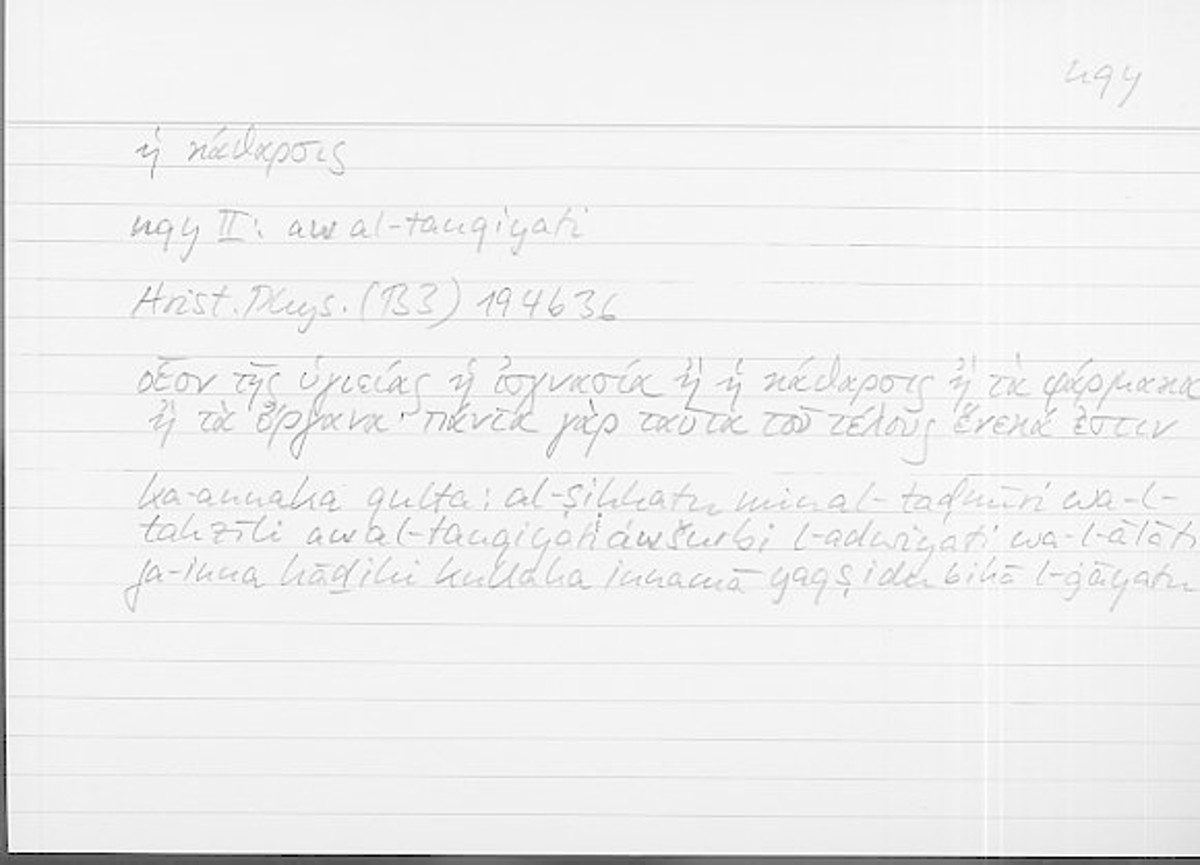 nqy
ἡ κάθαρσις
nqy II: aw al-tanqiyati
Arist. Phys. (B3) 194b36
οἷον τῆς ὑγιείας ἡ ἰσχνασία ἢ ἡ κάθαρσις ἢ τὰ φάρμακα
ἢ τὰ ὄργανα· πάντα γὰρ ταῦτα τοῦ τέλους ἕνεκά ἐστιν
ka-annaka qulta: al-ṣiḥḥatu min al-taḍmīri wa-l-
tahzīli aw al-tanqiyati aw šurbi l-adwiyati wa-l-ālāti
fa-inna hāḏihi kullaha innamā yaqṣidu bihā l-ġāyatu